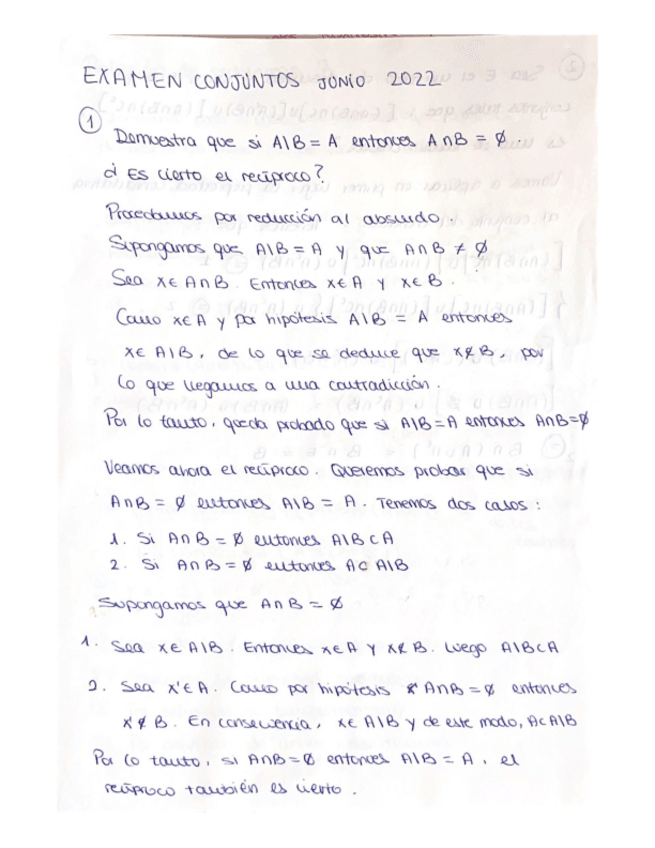 EXAMEN CONJUNTOS JUNIO 2022
① Demuestra que si A\B = A entonces A∩B = ∅.
¿Es cierto el recíproco?
Procedamos por reducción al absurdo.
Supongamos que A\B = A y que A∩B ≠ ∅
Sea x∈A∩B. Entonces x∈A y x∈B.
Como x∈A y por hipótesis A\B = A entonces
x∈ A\B, de lo que se deduce que x∉B, por
lo que llegamos a una contradicción.
Por lo tanto, queda probado que si A\B = A entonces A∩B=∅
Veamos ahora el recíproco. Queremos probar que si
A∩B = ∅ entonces A\B = A. Tenemos dos casos:
1. Si A∩B = ∅ entonces A\B⊂A
2. Si A∩B = ∅ entonces A⊂A\B
Supongamos que A∩B = ∅
1. Sea x∈A\B. Entonces x∈A y x∉B. Luego A\B⊂A
2. Sea x∈A. Como por hipótesis A∩B=∅ entonces
x∉B. En consecuencia, x∈A\B y de este modo, A⊂A\B
Por lo tanto, si A∩B=∅ entonces A\B = A, el
recíproco también es cierto.